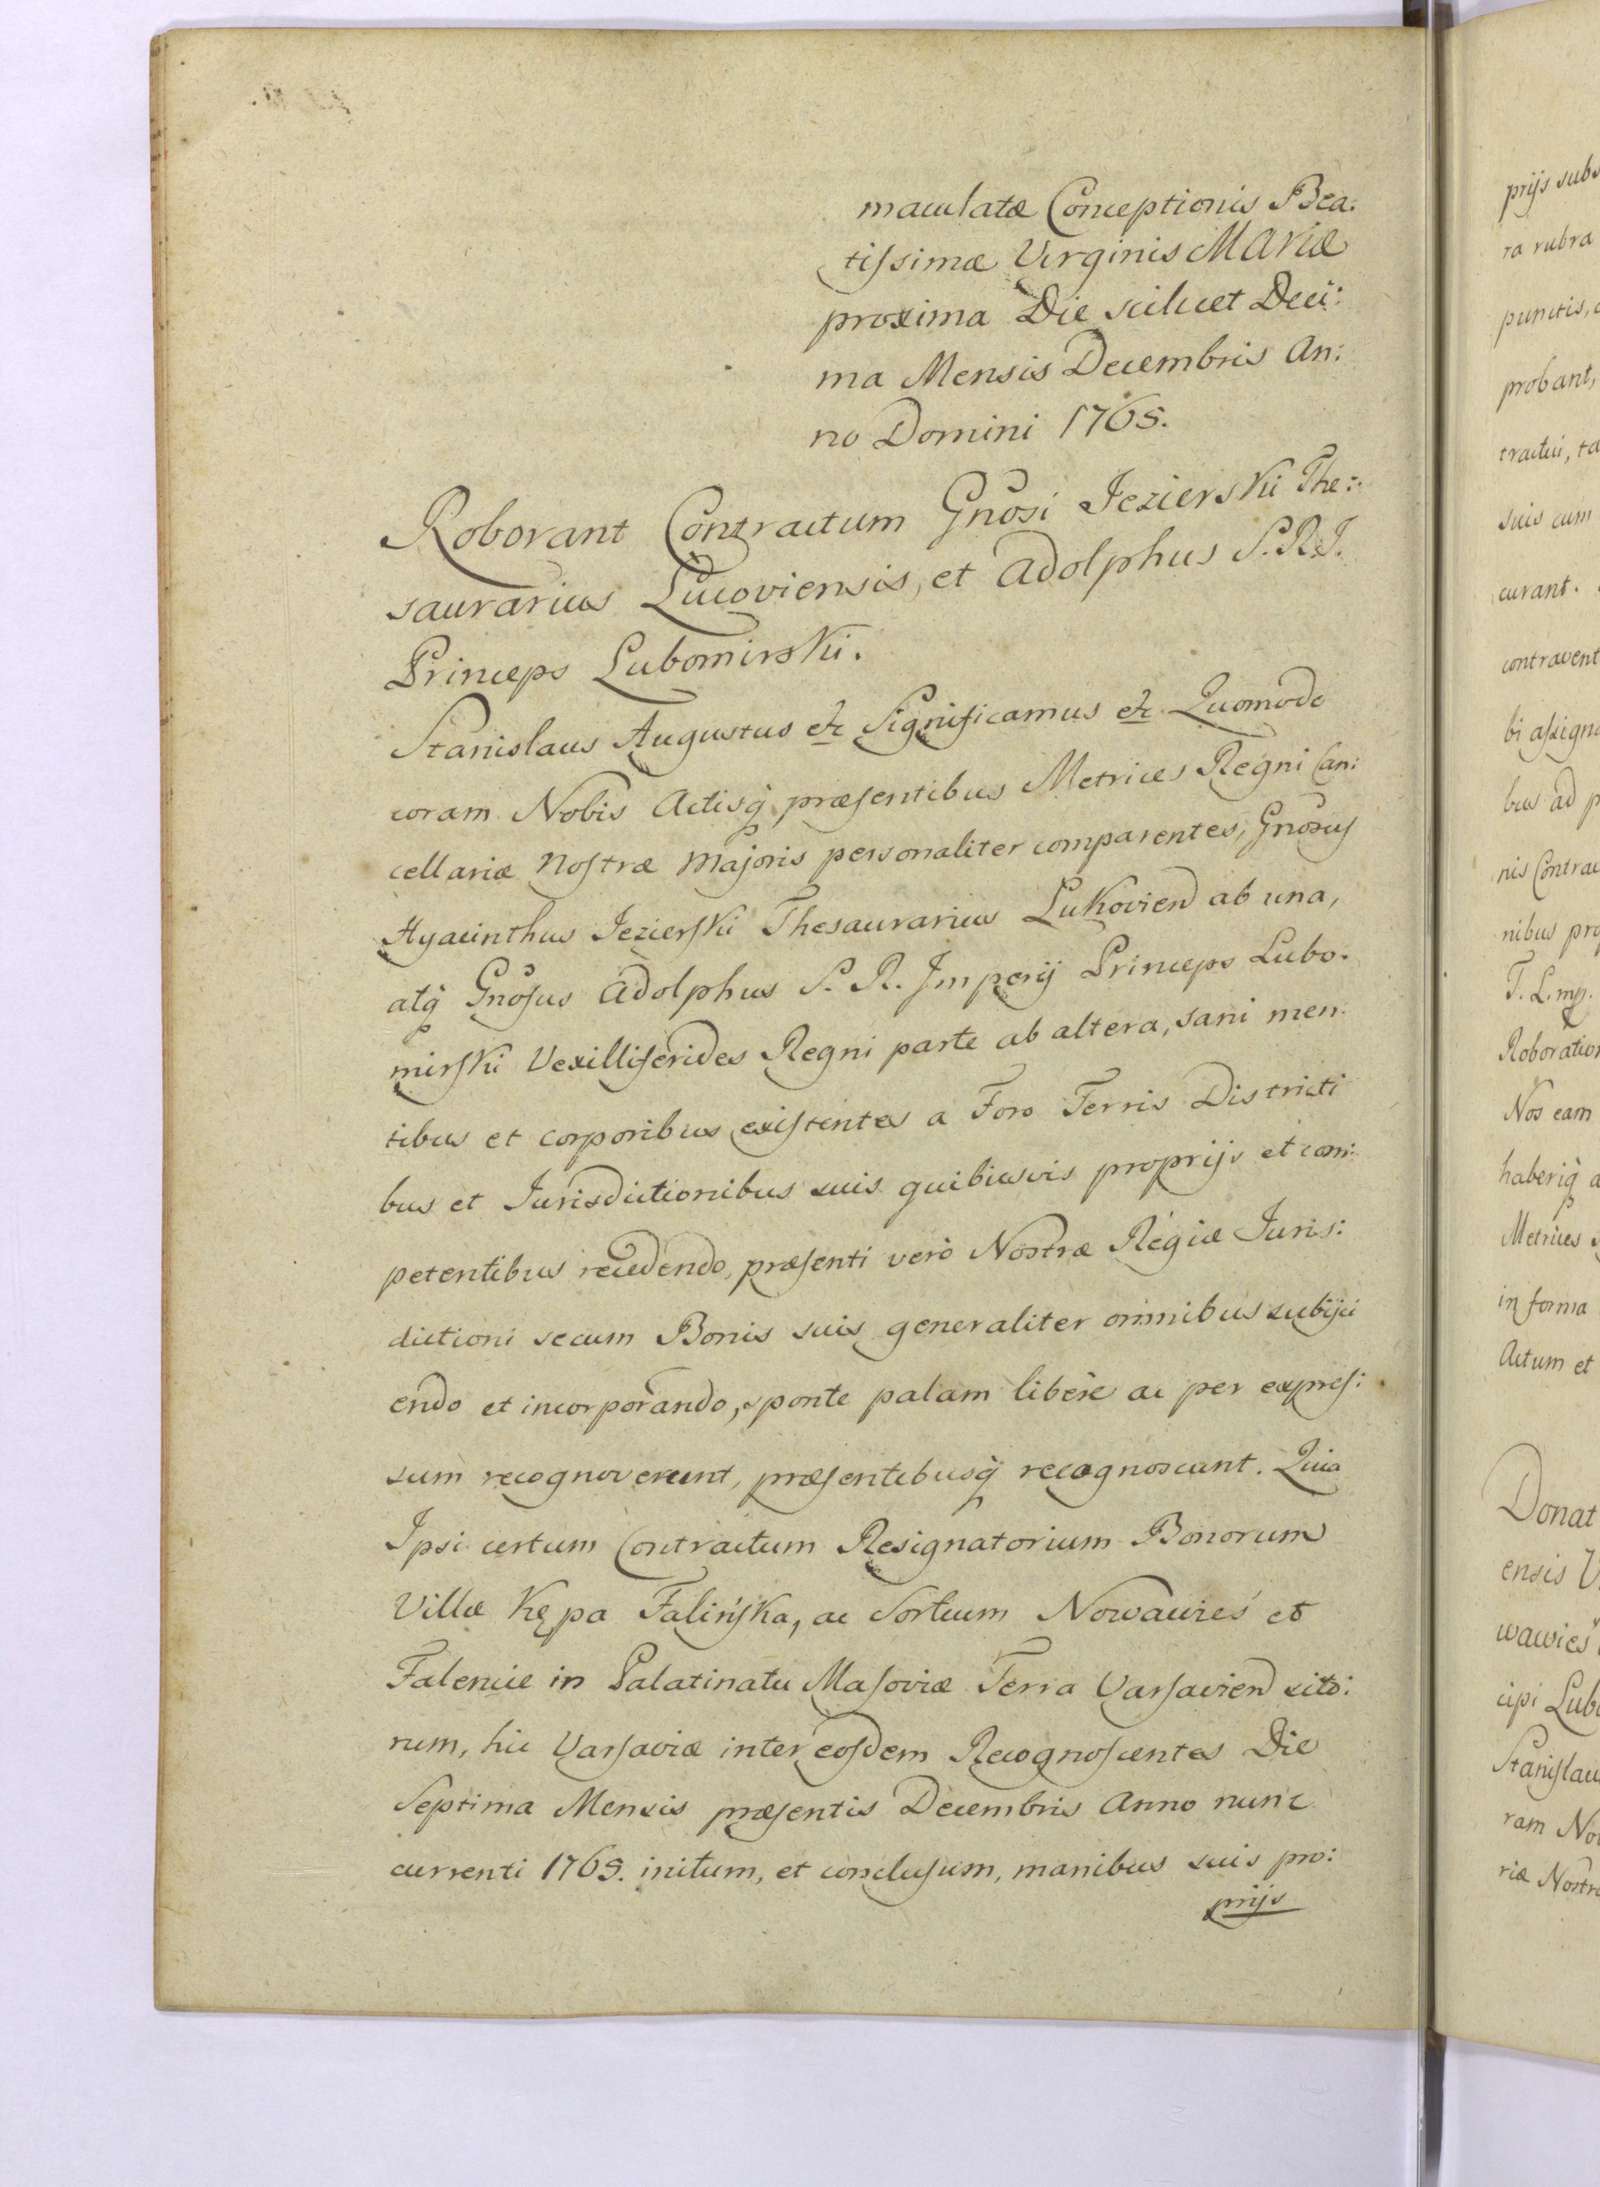 maculatæ Conceptionis Bea:
tissimæ Virginis MARIÆ
proxima Die scilicet Deci:
ma Mensis Decembris An:
no Domini 1765.
Roborant Contractum Gnosi Jezierski The:
saurarius Lucoviensis, et Adolphus S. R. I.
Princeps Lubomirski.
Stanislaus Augustus etc Significamus etc Quomodo
coram Nobis Actisq præsentibus Metrices Regni Can:
cellariæ Nostræ Majoris personaliter comparentes, Gnosus
Hyacinthus Jezierski Thesaurarius Lukovien ab una,
atq Gnosus Adolphus S. R. Imperij Princeps Lubo.
mirski Vexilliferides Regni parte ab altera, sani men.
tibus et corporibus existentes a Foro Terris Districti
bus et Jurisdictionibus suis quibusvis proprijs et com:
petentibus recedendo, præsenti verò Nostræ Regiæ Juris:
dictioni secum Bonis suis generaliter omnibus subijci
endo et incorporando, sponte palam liberè ac per expres:
sum recognoverunt, præsentibusq recognoscunt. Quia
Ipsi certum Contractum Resignatorium Bonorum
Villæ Kępa Falińska, ac Sortium Nowawieś et
Falenice in Palatinatu Masoviæ Terra Varsavien sito:
rum, hic Varsaviæ inter eosdem Recognoscentes Die
Septima Mensis præsentis Decembris Anno nunc
currenti 1765. initum, et conclusum, manibus suis pro:
prijs
prijs subs
ra rubra
punctis,
probant,
tractui, ta
suis cum
curant.
contravent
bi assigna
bus ad p
nis Contrac
nibus pro
T. L. mp.
Roboration
Nos eam
haberiq a
Metrices
in forma
Actum et
Donat
ensis V
wawieś
cipi Lubo
Stanislau
ram No
riæ Nostra